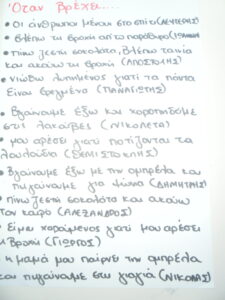 Όταν βρέχει....
• Οι άνθρωποι μένουν στο σπίτι (ΛΕΥΤΕΡΗΣ)
• Βλέπω τη βροχή από το παράθυρο
• Πίνω ζεστή σοκολάτα, βλέπω ταινία
και ακούω τη βροχή (ΑΠΟΣΤΟΛΗΣ)
• Νιώθω λυπημένος γιατί τα πάντα
είναι βρεγμένα (ΠΑΝΑΓΙΩΤΗΣ)
• Βγαίνουμε έξω και χοροπηδούμε
στις λακούβες (ΝΙΚΟΛΕΤΑ)
• μου αρέσει γιατί ποτίζονται τα
λουλούδια (ΘΕΜΙΣΤΟΚΛΗΣ)
• Βγαίνουμε έξω με την ομπρέλα και
πηγαίνουμε για ψώνια (ΔΗΜΗΤΡΗΣ)
• Πίνω ζεστή σοκολάτα και ακούω
τον καιρό (ΑΛΕΞΑΝΔΡΟΣ)
• Είμαι χαρούμενος γιατί μου αρέσει
η βροχή (ΓΙΩΡΓΟΣ)
• η μαμά μου παίρνει την ομπρέλα
και πηγαίνουμε στη γιαγιά (ΝΙΚΟΛΑΣ)